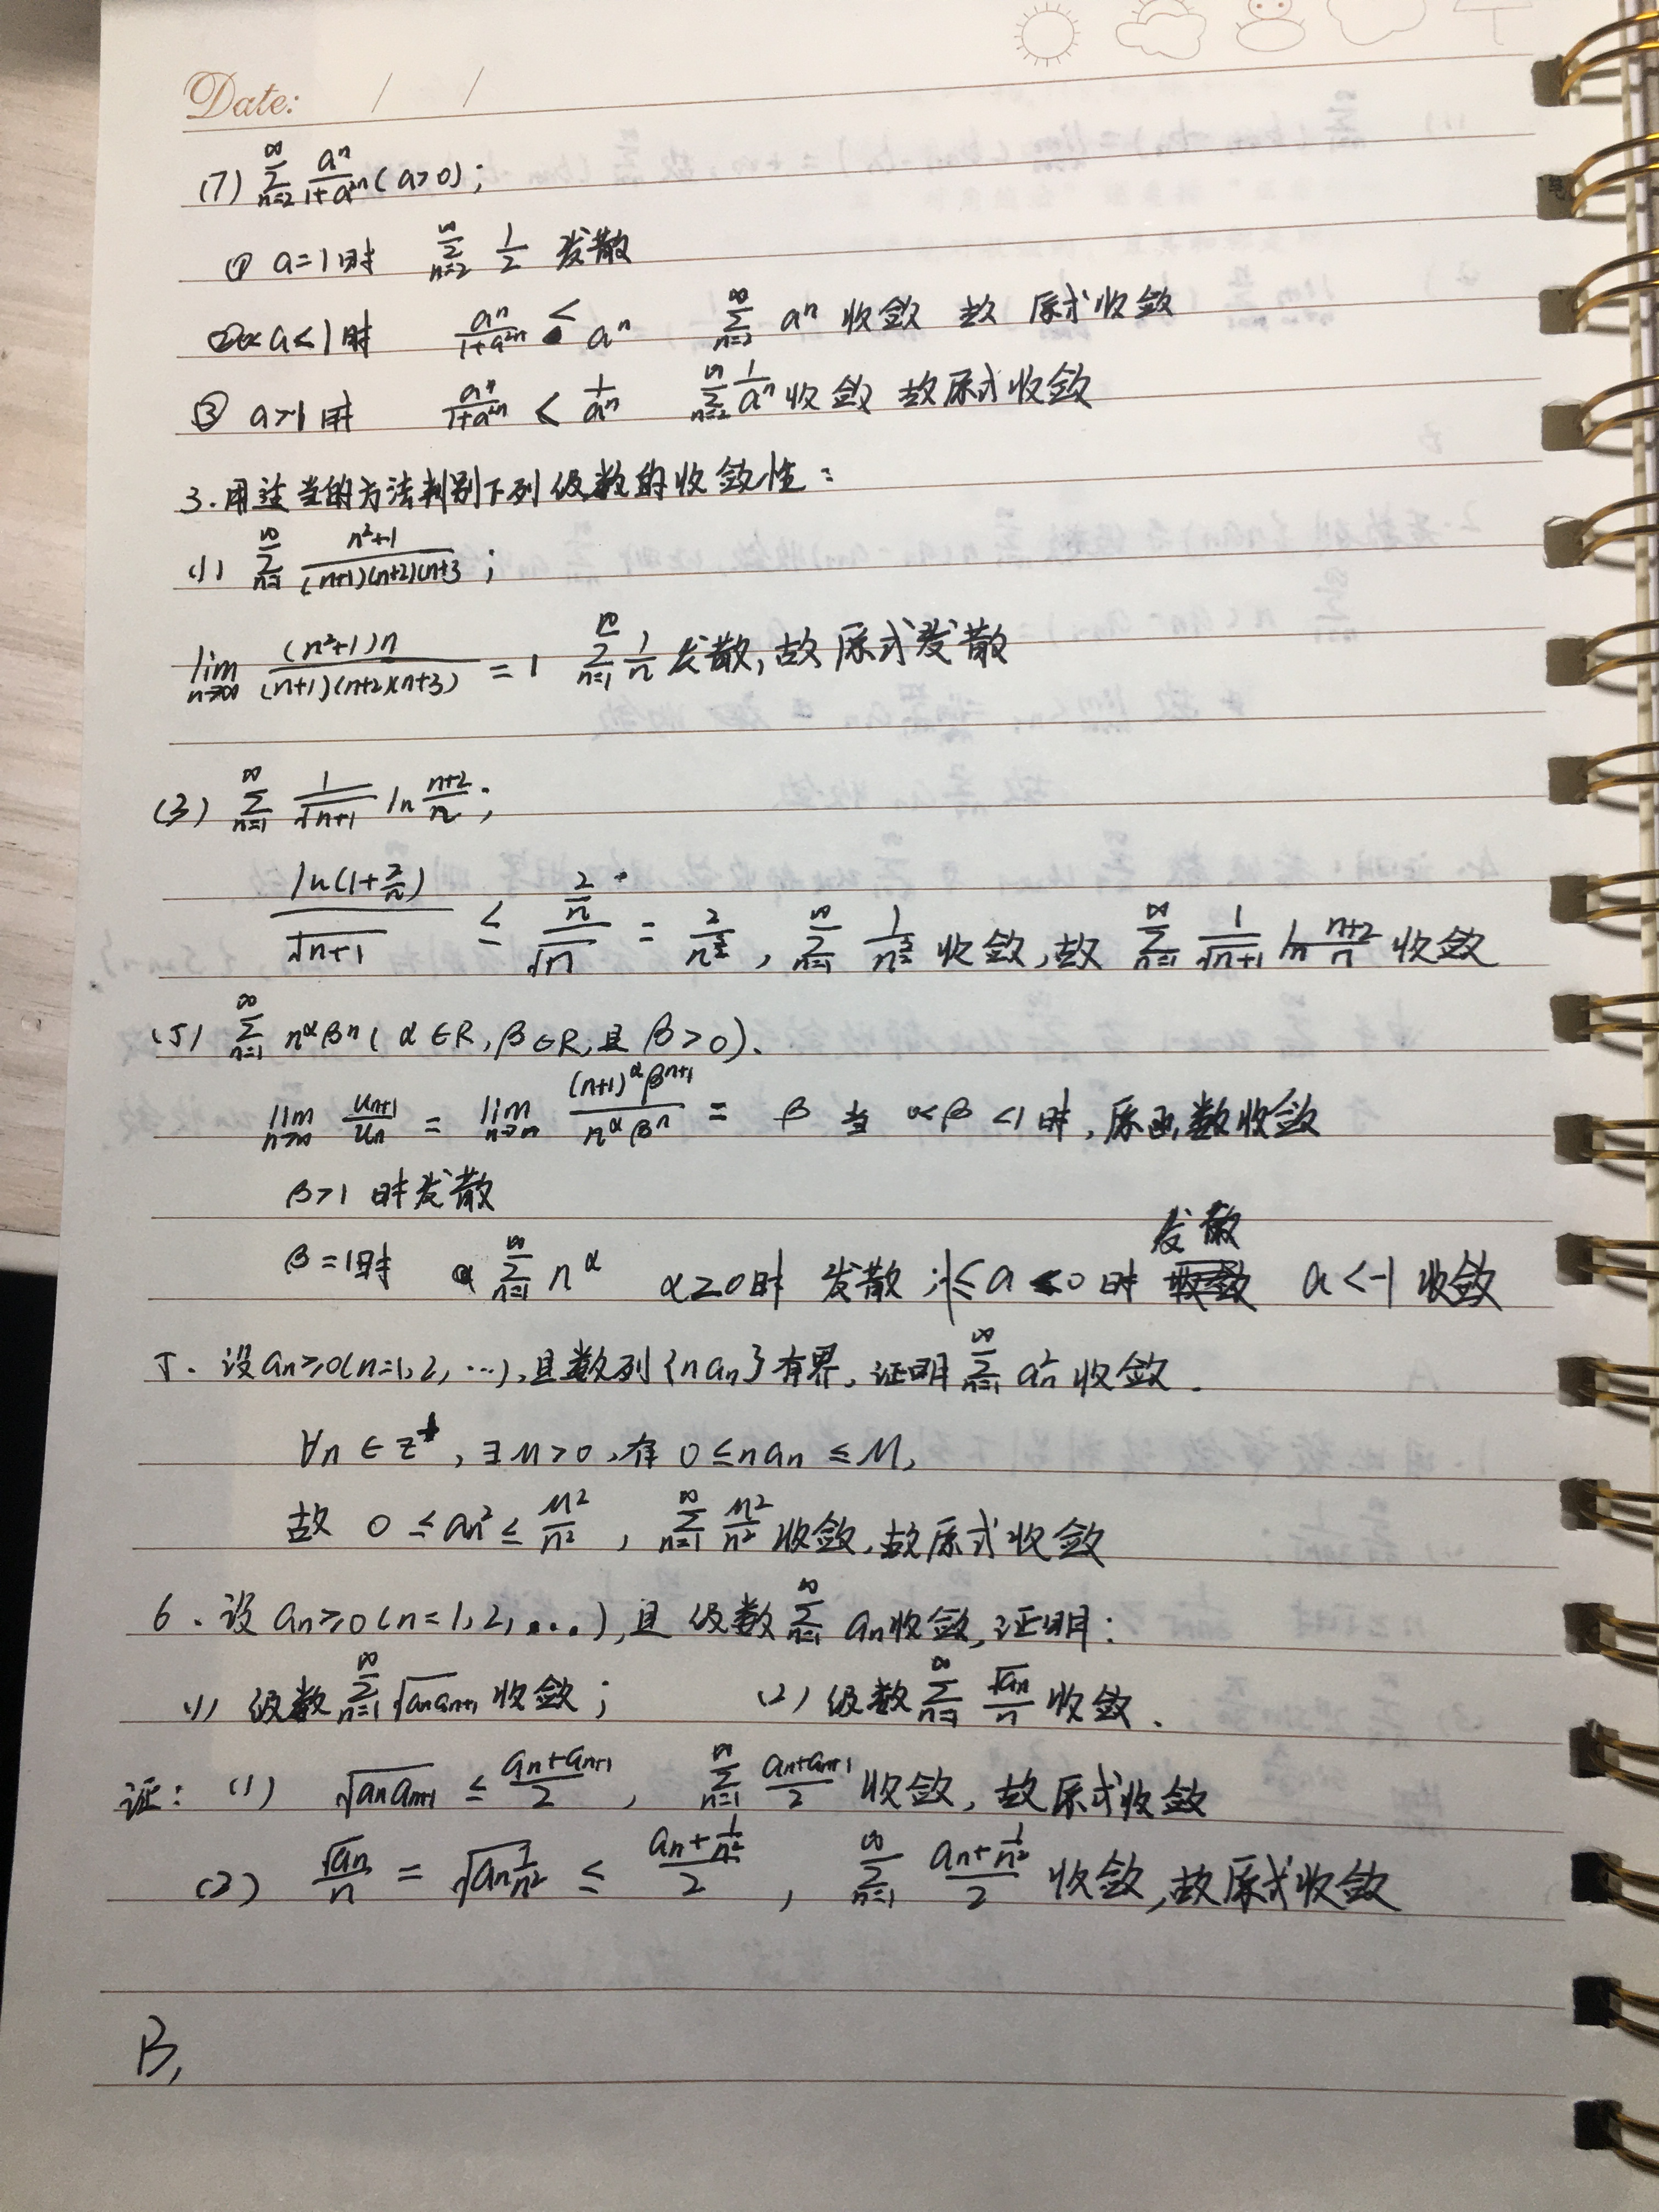 Date: / /
(7) ∑_{n=2}^{∞} a^n/(1+a^{2n}) (a>0);
① a=1时 ∑_{n=2}^{∞} 1/2 发散
②0<a<1时 a^n/(1+a^{2n}) < a^n ∑_{n=2}^{∞} a^n 收敛 故 原式收敛
③ a>1时 a^n/(1+a^{2n}) < 1/a^n ∑_{n=2}^{∞} 1/a^n 收敛 故原式收敛
3.用适当的方法判别下列级数的收敛性:
(1) ∑_{n=1}^{∞} (n²+1)/((n+1)(n+2)(n+3);
lim_{n→∞} (n²+1)n/((n+1)(n+2)(n+3)) = 1 ∑_{n=1}^{∞} 1/n 发散,故 原式发散
(3) ∑_{n=1}^{∞} 1/√(n+1) ln (n+2)/n;
ln(1+2/n)/√(n+1) ≤ (2/n)/√n = 2/n^{3/2}, ∑_{n=1}^{∞} 1/n^{3/2} 收敛,故 ∑_{n=1}^{∞} 1/√(n+1) ln (n+2)/n 收敛
(5) ∑_{n=1}^{∞} n^α β^n ( α∈R, β∈R,且 β>0).
lim_{n→∞} u_{n+1}/u_n = lim_{n→∞} (n+1)^α β^{n+1}/(n^α β^n) = β 当 0<β<1时,原函数收敛
β>1 时发散
发散
β=1时 ∑_{n=1}^{∞} n^α α≥0时 发散;-1≤a<0时 a<-1 收敛
5. 设a_n≥0(n=1,2,…),且数列{n a_n}有界,证明∑_{n=1}^{∞} a_n² 收敛.
∀n∈Z⁺,∃M>0,有 0≤n a_n≤M,
故 0≤a_n²≤M²/n², ∑_{n=1}^{∞} M²/n² 收敛,故原式收敛
6.设 a_n≥0(n=1,2,...),且 级数∑_{n=1}^{∞} a_n收敛,证明:
(1) 级数∑_{n=1}^{∞} √(a_n a_{n+1}) 收敛; (2) 级数∑_{n=1}^{∞} √a_n/n 收敛.
证: (1) √(a_n a_{n+1}) ≤ (a_n+a_{n+1})/2, ∑_{n=1}^{∞} (a_n+a_{n+1})/2 收敛,故原式收敛
(2) √a_n/n = √(a_n 1/n²) ≤ (a_n+1/n²)/2, ∑_{n=1}^{∞} (a_n+1/n²)/2 收敛,故原式收敛
B,